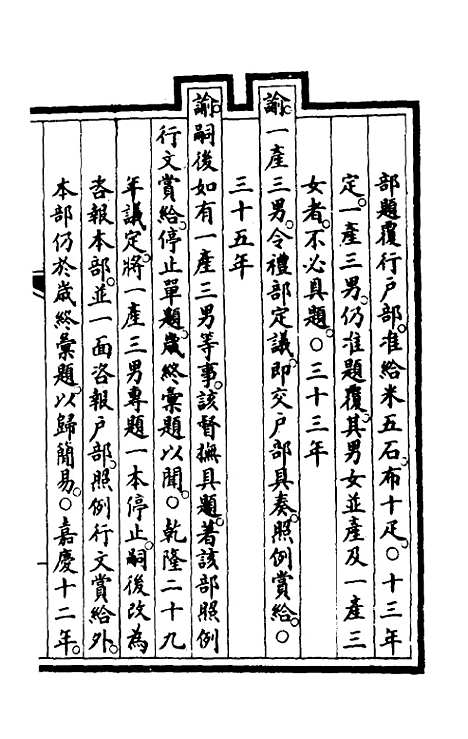 部題覆行户部。准給米五石。布十疋。○十三年
定。一產三男。仍准題覆。其男女並產及一產三
女者。不必具題。○三十三年
諭。一產三男。令禮部定議。即交户部具奏。照例賞給。○
三十五年
諭。嗣後如有一產三男等事。該督撫具題。著該部照例
行文賞給。停止單題。歲終彙題以聞。○乾隆二十九
年議定。將一產三男專題一本停止。嗣後改為
咨報本部。並一面咨報户部。照例行文賞給外。
本部仍於歲終彙題。以歸簡易。○嘉慶十二年。